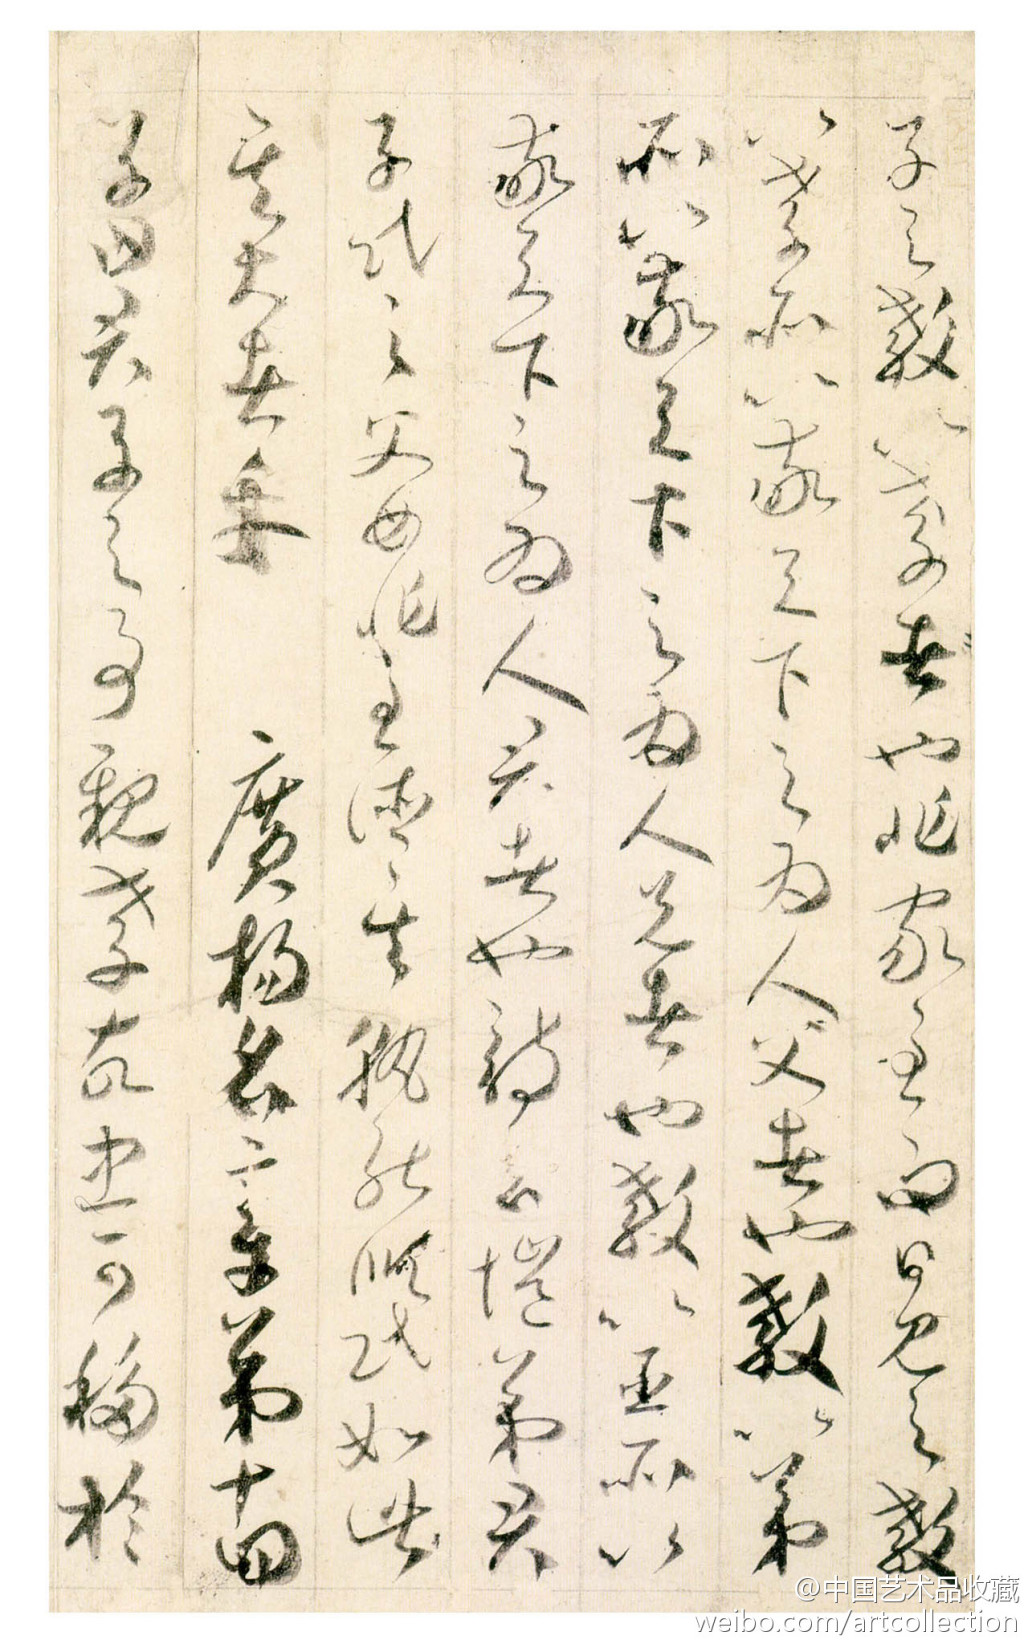 子之教以孝者也非家至而日見之教
以孝所以敬天下之為人父者也教以弟
所以敬天下之為人兄者也教以臣所以
敬天下之為人君者也詩云愷弟君
子民之父母非至德其孰能順民如此
其大者乎 廣揚名章第十四
子曰君子之事親孝故忠可移於
@中国艺术品收藏
weibo.com/artcollection